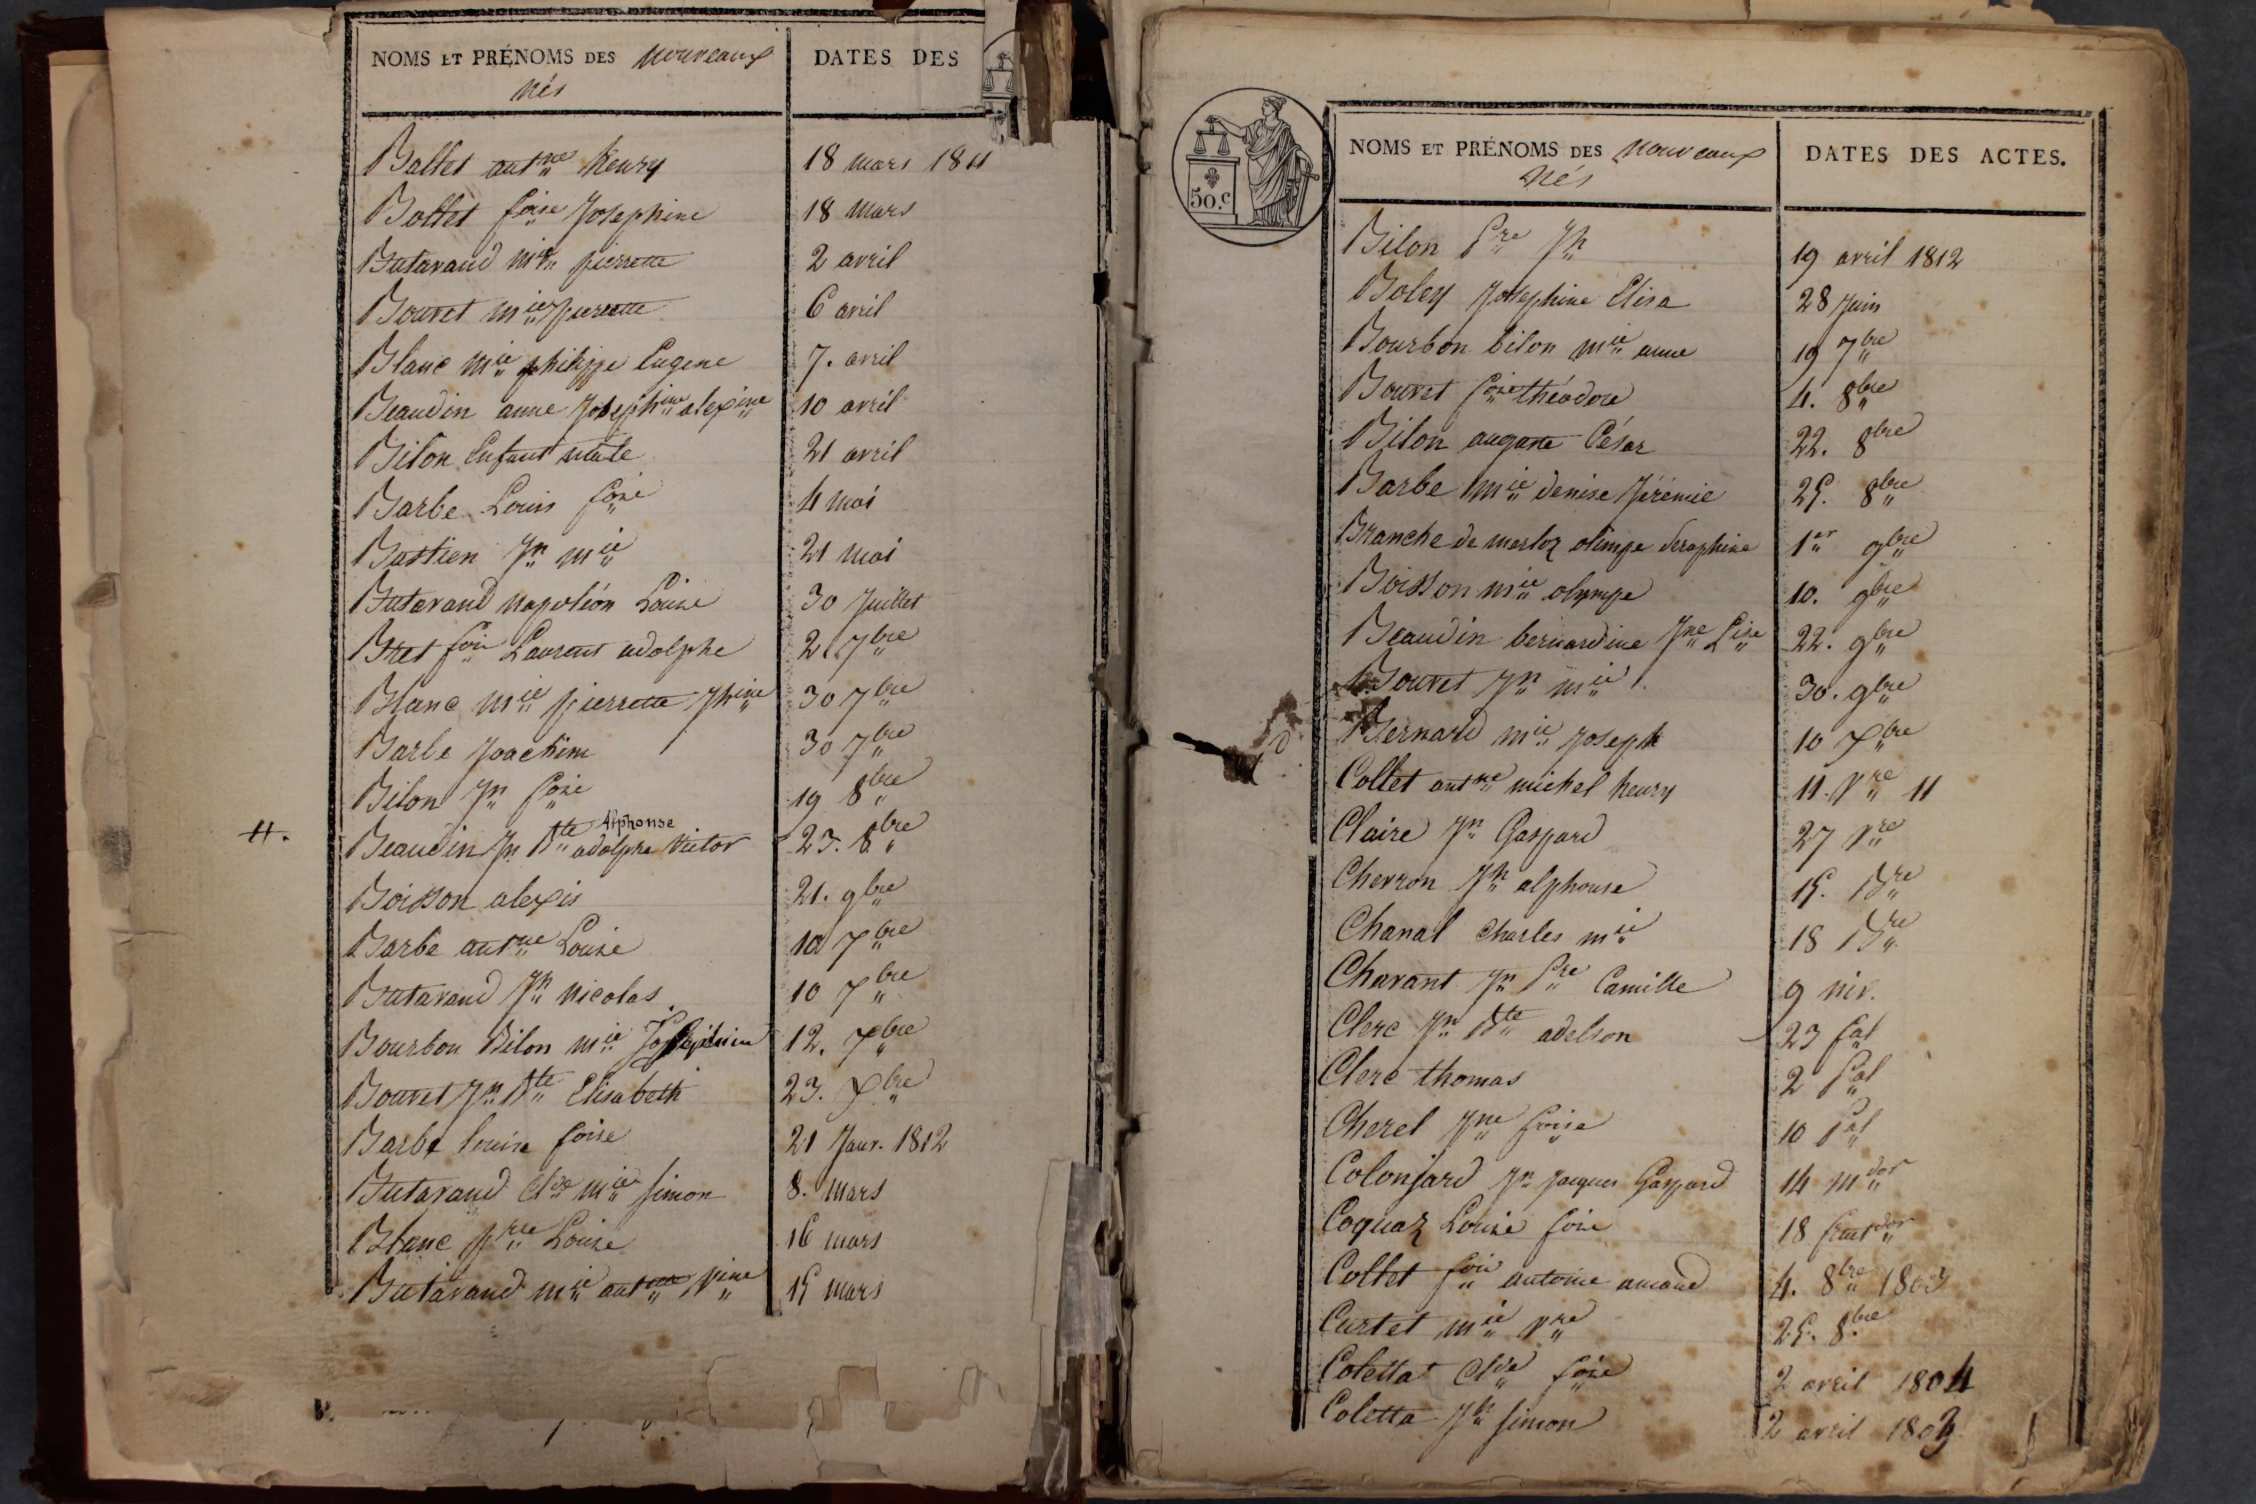 NOMS ET PRÉNOMS DES nouveaux
nés
DATES DES
Ballet antne henry 18 mars 1811
Bollet foise Josephine 18 mars
Butavand mie pierrette 2 avril
Bouvet mie pierrette 6 avril
Blanc mie philippe Eugene 7. avril
Beaudin anne Josephine alexine 10 avril
Bilon Enfant mâle 21 avril
Barbe Louis foise 4 mai
Bastien Jn mie 21 mai
Butavand Napoléon Louise 30 Juillet
Bret fois Laurent adolphe 2. 7bre
Blanc mie pierrette Jphine 30 7bre
Barbe Joachim 30 7bre
Bilon Jn foise 19 8bre
Alphonse
H. Beaudin Jn Bte adolphe Victor 23. 8bre
Boisson alexis 21. 9bre
Barbe antne Louise 10 Xbre
Butavand Jh Nicolas 10 Xbre
Bourbon Bilon mie Josephine 12. Xbre
Bouvet Jn Bte Elisabeth 23. Xbre
Barbe louise foise 21 Janv. 1812
Butavand Clde mie simon 8. mars
Blanc prre Louise 16 mars
Butavand mie antne 15 mars
50.c
NOMS ET PRÉNOMS DES nouveaux
nés
DATES DES ACTES.
Bilon Pre Jh 19 avril 1812
Boley Josephine Elisa 28 Juin
Bourbon bilon mie anne 19 7bre
Bouvet foise théodore 4. 8bre
Bilon auguste César 22. 8bre
Barbe mie denise Jérémie 25. 8bre
Branche de marloz olimpe Seraphine 1er 9bre
Boisson mie olympe 10. 9bre
Beaudin bernardine Jne Lise 22. 9bre
Bouvet Jn mie 30. 9bre
Bernard mie Joseph 10 Xbre
Collet antne michel henry 11. Vre 11
Claire Jn Gaspard 27 Vre
Chevron Jh alphonse 15. Bre
Chanal Charles mie 18 Bre
Chavant Jn Pre Camille 9 niv.
Clerc Jn Bte adelson 23 fal
Clerc thomas 2 Pal
Cherel Jne foise 10 Pal
Colonjard Jn Jacques Gaspard 14 mdor
Coquaz Louise foise 18 fructdor
Collet fois antoine amand 4. 8bre 1803
Curtet mie Vre 25. 8bre
Coletta Clde foise 2 avril 1804
Coletta Jh simon 2 avril 1803